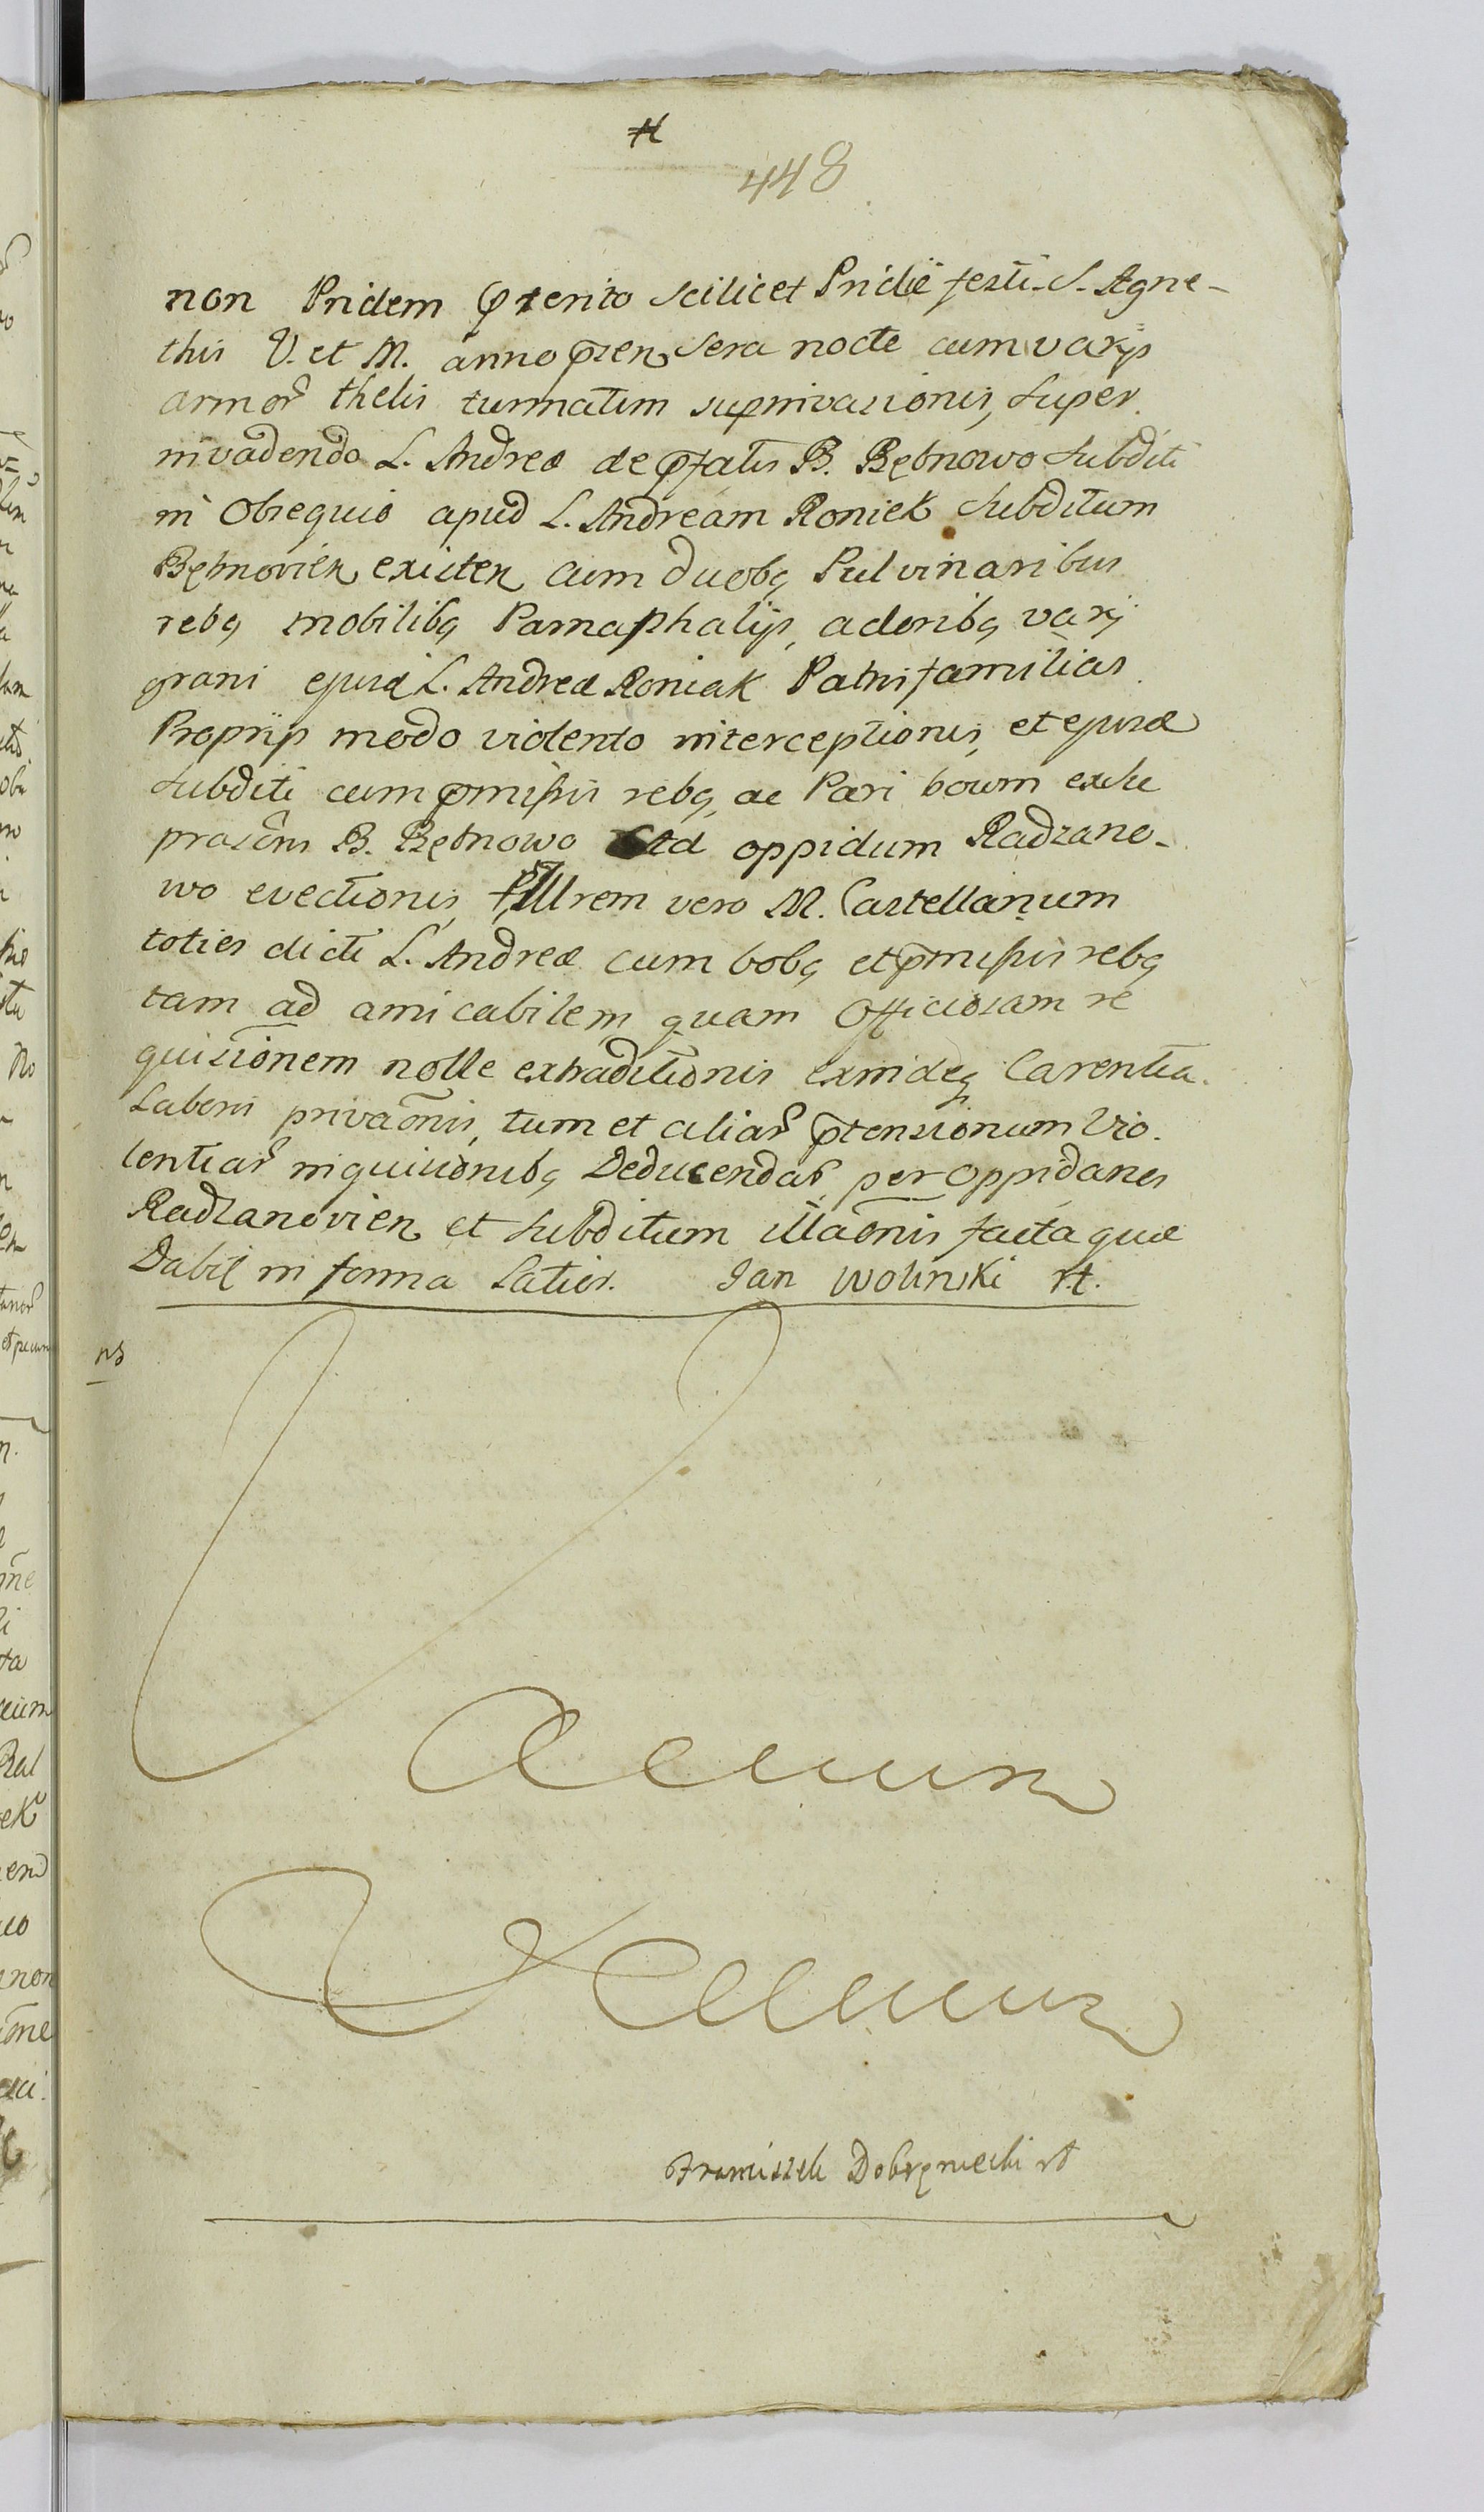 448
non Pridem prterito scilicet Pridie festi S. Agne-
this V. et M. anno pñsen sera nocte cum varÿs
armor thelis turmatim supinvasionis, super
invadendo L. Andreæ de pfatis B. Bętnowo subditi
in Obsequio apud L. Andream Roniek subditum
Bętnovien existen cum duobq Pulvinaribus
rebq mobilibq Parnaphalÿs, adoribq varÿ
grani ejusd L. Andreæ Roniak Patrisfamilias
Proprÿs modo violento interceptionis, et ejusd
subditi cum pmissis rebq, ac Pari boum
B. Bętnowo ad oppidum Radzano-
wo evectionis, Illrem vero M. Castellanum
toties dicti L. Andreæ cum bobq et pmissis rebq
tam ad amicabilem quam Officiosam re
quisionem nolle extraditionis exindeq Carentia
Laboris privaonis, tum et aliar ptensionum Vio-
lentiar inquisionibq Deducendar, per Oppidanos
Radzanovien et subditum illaonis facta quæ
Dabit in forma Latior. Jan Wolinski rt.
NB
Vacuum
Vacuum
Franciszek Dobrzeniecki rt